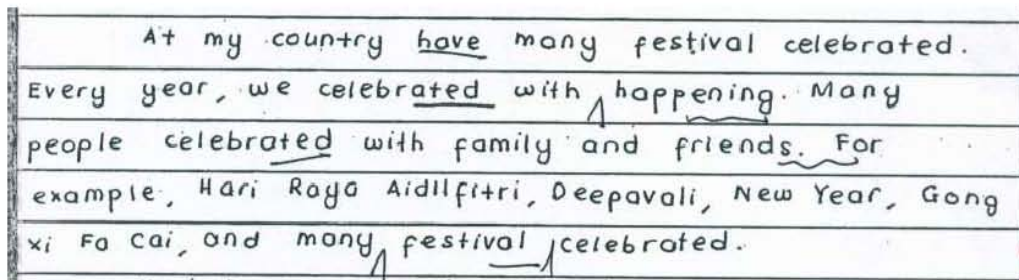 At my country have many festival celebrated.
Every year, we celebrated with happening. Many
people celebrated with family and friends. For
example, Hari Raya Aidilfitri, Deepavali, New Year, Gong
xi Fa Cai, and many festival celebrated.